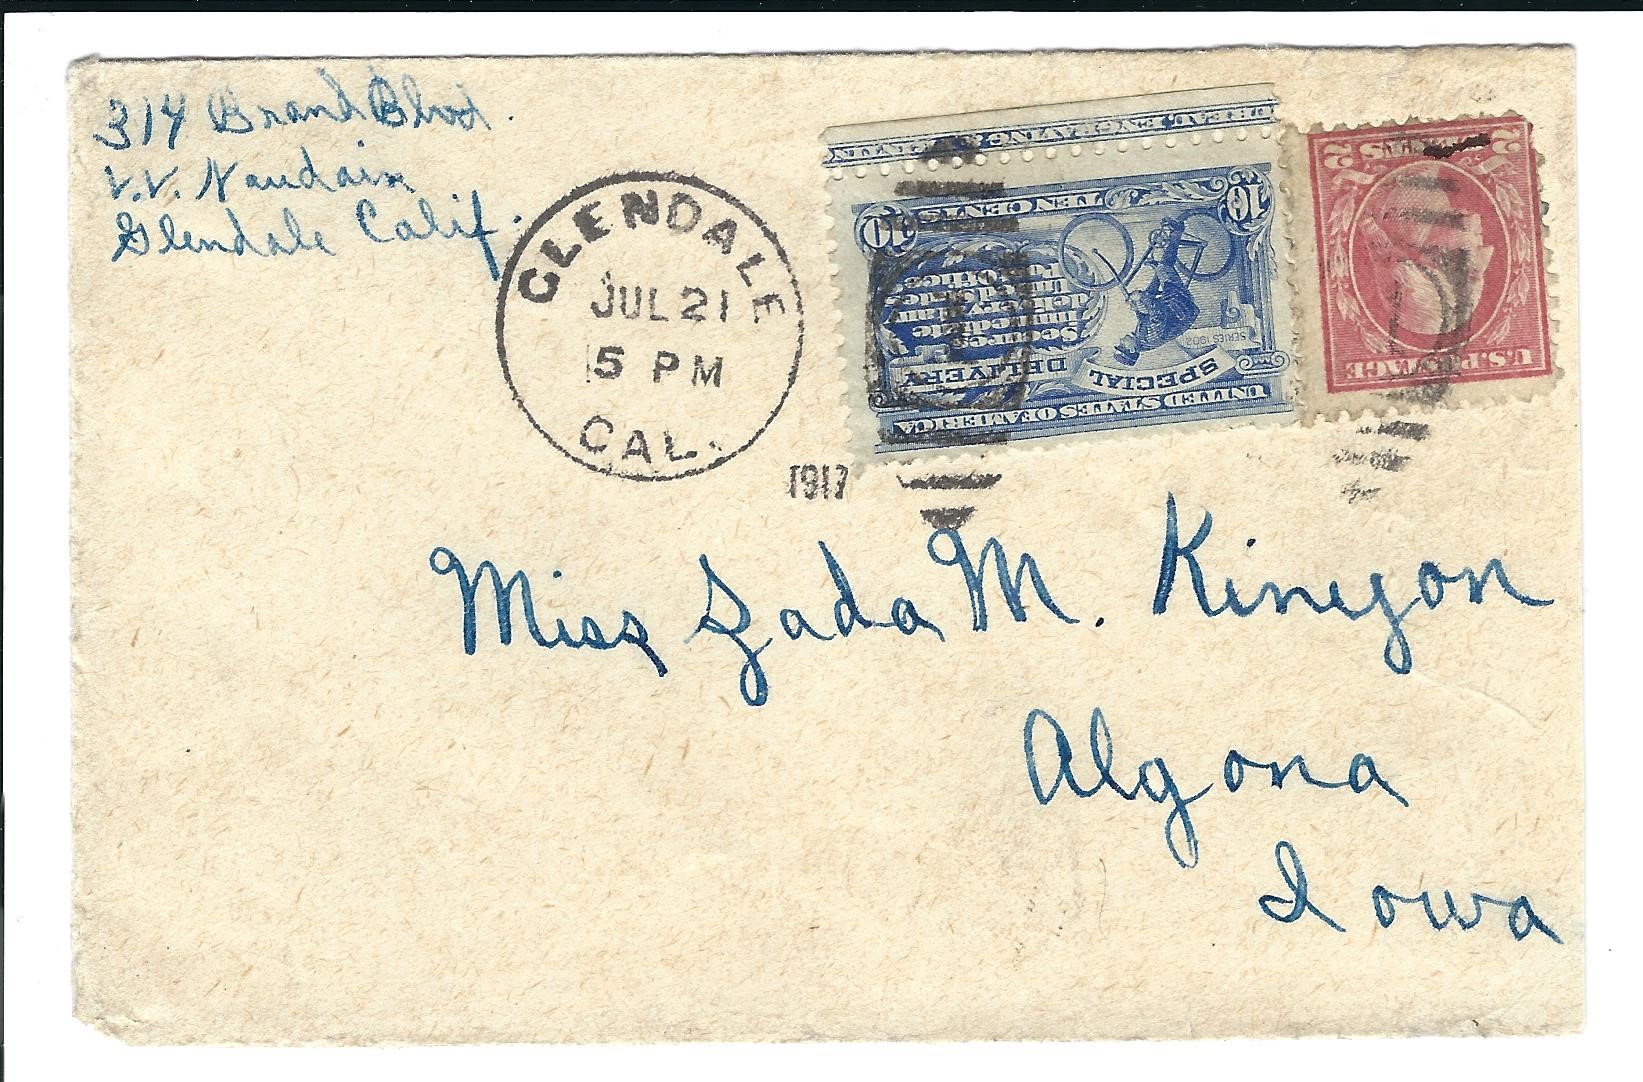 314 Brand Blvd.
V.V. Naudain
Glendale Calif.
GLENDALE
JUL 21
5 PM
CAL.
1917
UREAU, ENGRAVING &
10 TEN CENTS 10
SERIES 1902
SPECIAL DELIVERY
UNITED STATES OF AMERICA
Secures
immediate
delivery
at any
United States
Post Office
2 CENTS 2
U.S. POSTAGE
Miss Zada M. Kinyon
Algona
Iowa